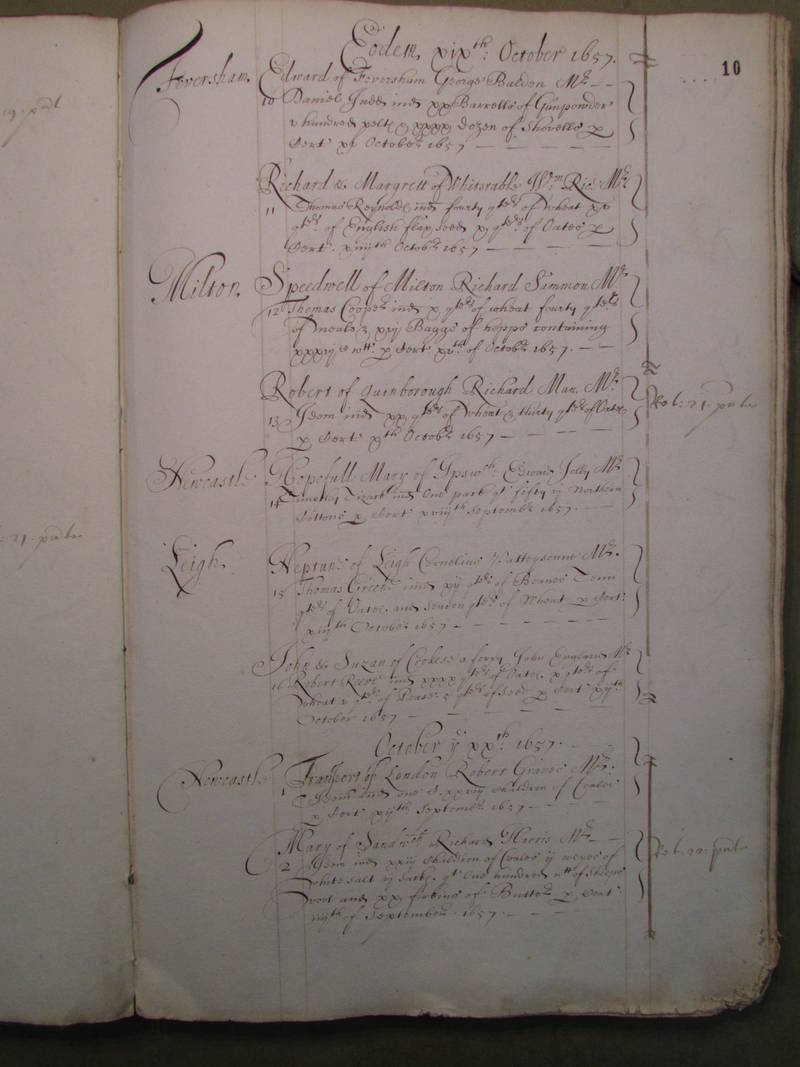 Eodem xixth: October 1657.
10
Feversham Edward of Feversham George Baldon Mr
10 Daniel Judd ind xx Barrells of Gunpowder
v hundred pelts & xxxx dozen of Shovells p
Cert xv October 1657
Richard & Margrett of Whitstable Wm Rice Mr
11 Thomas Reynolds ind fourty qters of wheat xx
qters of English flax seed x qters of Oates p
Cert xiiijth Octobr 1657
Milton Speedwell of Milton Richard Simmon Mr
12 Thomas Cooper ind x qters of wheat fourty qters
of meale & xvj Baggs of hopps containing
wtt p Cert xvth of Octobr 1657.
Robert of Quinborough Richard Man Mr
13 Idem ind xx qters of wheat & thirty qters of Oates
p Cert Octobr 1657
Newcastle Hopefull Mary of Ipswch Edward Jolly Mr
14 Timothy ind One pack qt fifty ij Northern
Cottons p Cert xviijth Septembr 1657
Leigh Neptune of Leigh Cornelius Pattysonne Mr
15 Thomas Greene ind qters of Beanes Tenn
qters of Oates and Seaven qters of Wheat p Cert
xiijth October 1657
John & Suzan of a ferry John England Mr
16 Robert Reeve ind xxxx qters of Oates x qters of
wheat qters of Pease & qters of p Cert
October 1657
October ye xxth: 1657.
Newcastle Transport of London Robert Graves Mr
1 Idem ind one C xxviij Chaldren of Coales
p Cert xijth September 1657
Mary of Sandwch Richard Harris Mr
2 Idem ind xxiij Chaldren of Coales ij weyes of
white salt ij sacks qt One hundred wtt of Sheeps
wool and xx firkins of Butter p Cert
of September 1657